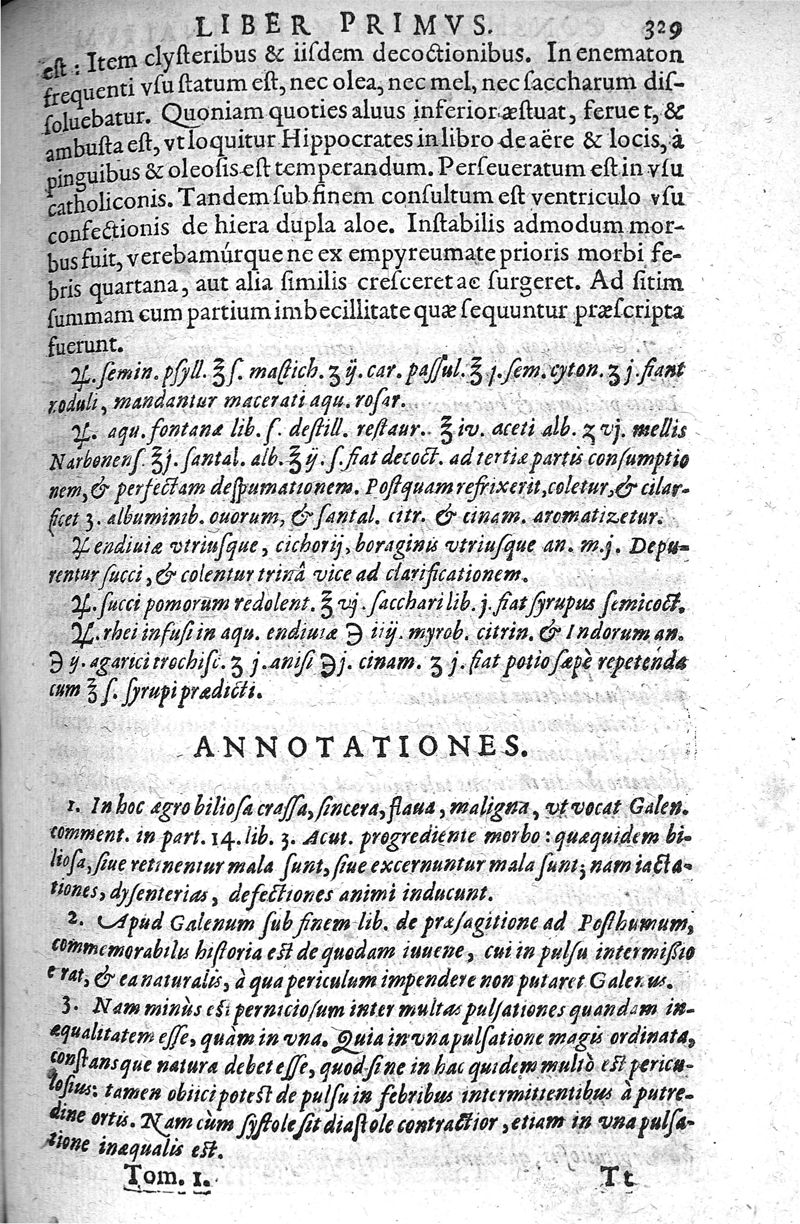 LIBER PRIMVS. 329
est: Item clysteribus & iisdem decoctionibus. In enematon
frequenti vsu statum est, nec olea, nec mel, nec saccharum dis-
soluebatur. Quoniam quoties aluus inferior æstuat, feruet, &
ambusta est, vt loquitur Hippocrates in libro de aëre & locis, à
pinguibus & oleosis est temperandum. Perseueratum est in vsu
catholiconis. Tandem sub finem consultum est ventriculo vsu
confectionis de hiera dupla aloe. Instabilis admodum mor-
bus fuit, verebamúrque ne ex empyreumate prioris morbi fe-
bris quartana, aut alia similis cresceret ac surgeret. Ad sitim
summam cum partium imbecillitate quæ sequuntur præscripta
fuerunt.
♃. semin. psyll. ℥ s. mastich. ʒ ij. car. passul. ℥ j. sem. cyton. ʒ j. fiant
roduli, mandantur macerati aqu. rosar.
♃. aqu. fontanæ lib. s. destill. restaur. ℥ iv. aceti alb. ʒ vj. mellis
Narbonens. ℥j. santal. alb. ℥ ij. s. fiat decoct. ad tertiæ partis consumptio
nem, & perfectam despumationem. Postquam refrixerit, coletur, & cilar-
ficet 3. albuminib. ouorum, & santal. citr. & cinam. aromatizetur.
♃ endiuiæ vtriusque, cichorij, boraginis vtriusque an. m.j. Depu-
rentur succi, & colentur trinâ vice ad clarificationem.
♃. succi pomorum redolent. ℥ vj. sacchari lib. j. fiat syrupus semicoct.
♃. rhei infusi in aqu. endiuiæ ℈ iiij. myrob. citrin. & Indorum an.
℈ ij. agarici trochisc. ʒ j. anisi ℈j. cinam. ʒ j. fiat potio sæpè repetenda
cum ℥ s. syrupi prædicti.
ANNOTATIONES.
1. In hoc ægro biliosa crassa, sincera, flaua, maligna, vt vocat Galen.
comment. in part. 14. lib. 3. Acut. progrediente morbo: quæquidem bi-
liosa, siue retinentur mala sunt, siue excernuntur mala sunt; nam iacta-
tiones, dysenterias, defectiones animi inducunt.
2. Apud Galenum sub finem lib. de præsagitione ad Posthumum,
commemorabilis historia est de quodam iuuene, cui in pulsu intermissio
erat, & ea naturalis, à qua periculum impendere non putaret Galenus.
3. Nam minùs est perniciosum inter multas pulsationes quandam in-
æqualitatem esse, quàm in vna. Quia in vna pulsatione magis ordinata,
constansque natura debet esse, quod sine in hac quidem multò est pericu-
losius: tamen obiici potest de pulsu in febribus intermittentibus à putre-
dine ortis. Nam cùm systole sit diastole contractior, etiam in vna pulsa-
tione inæqualis est.
Tom. 1. Tt